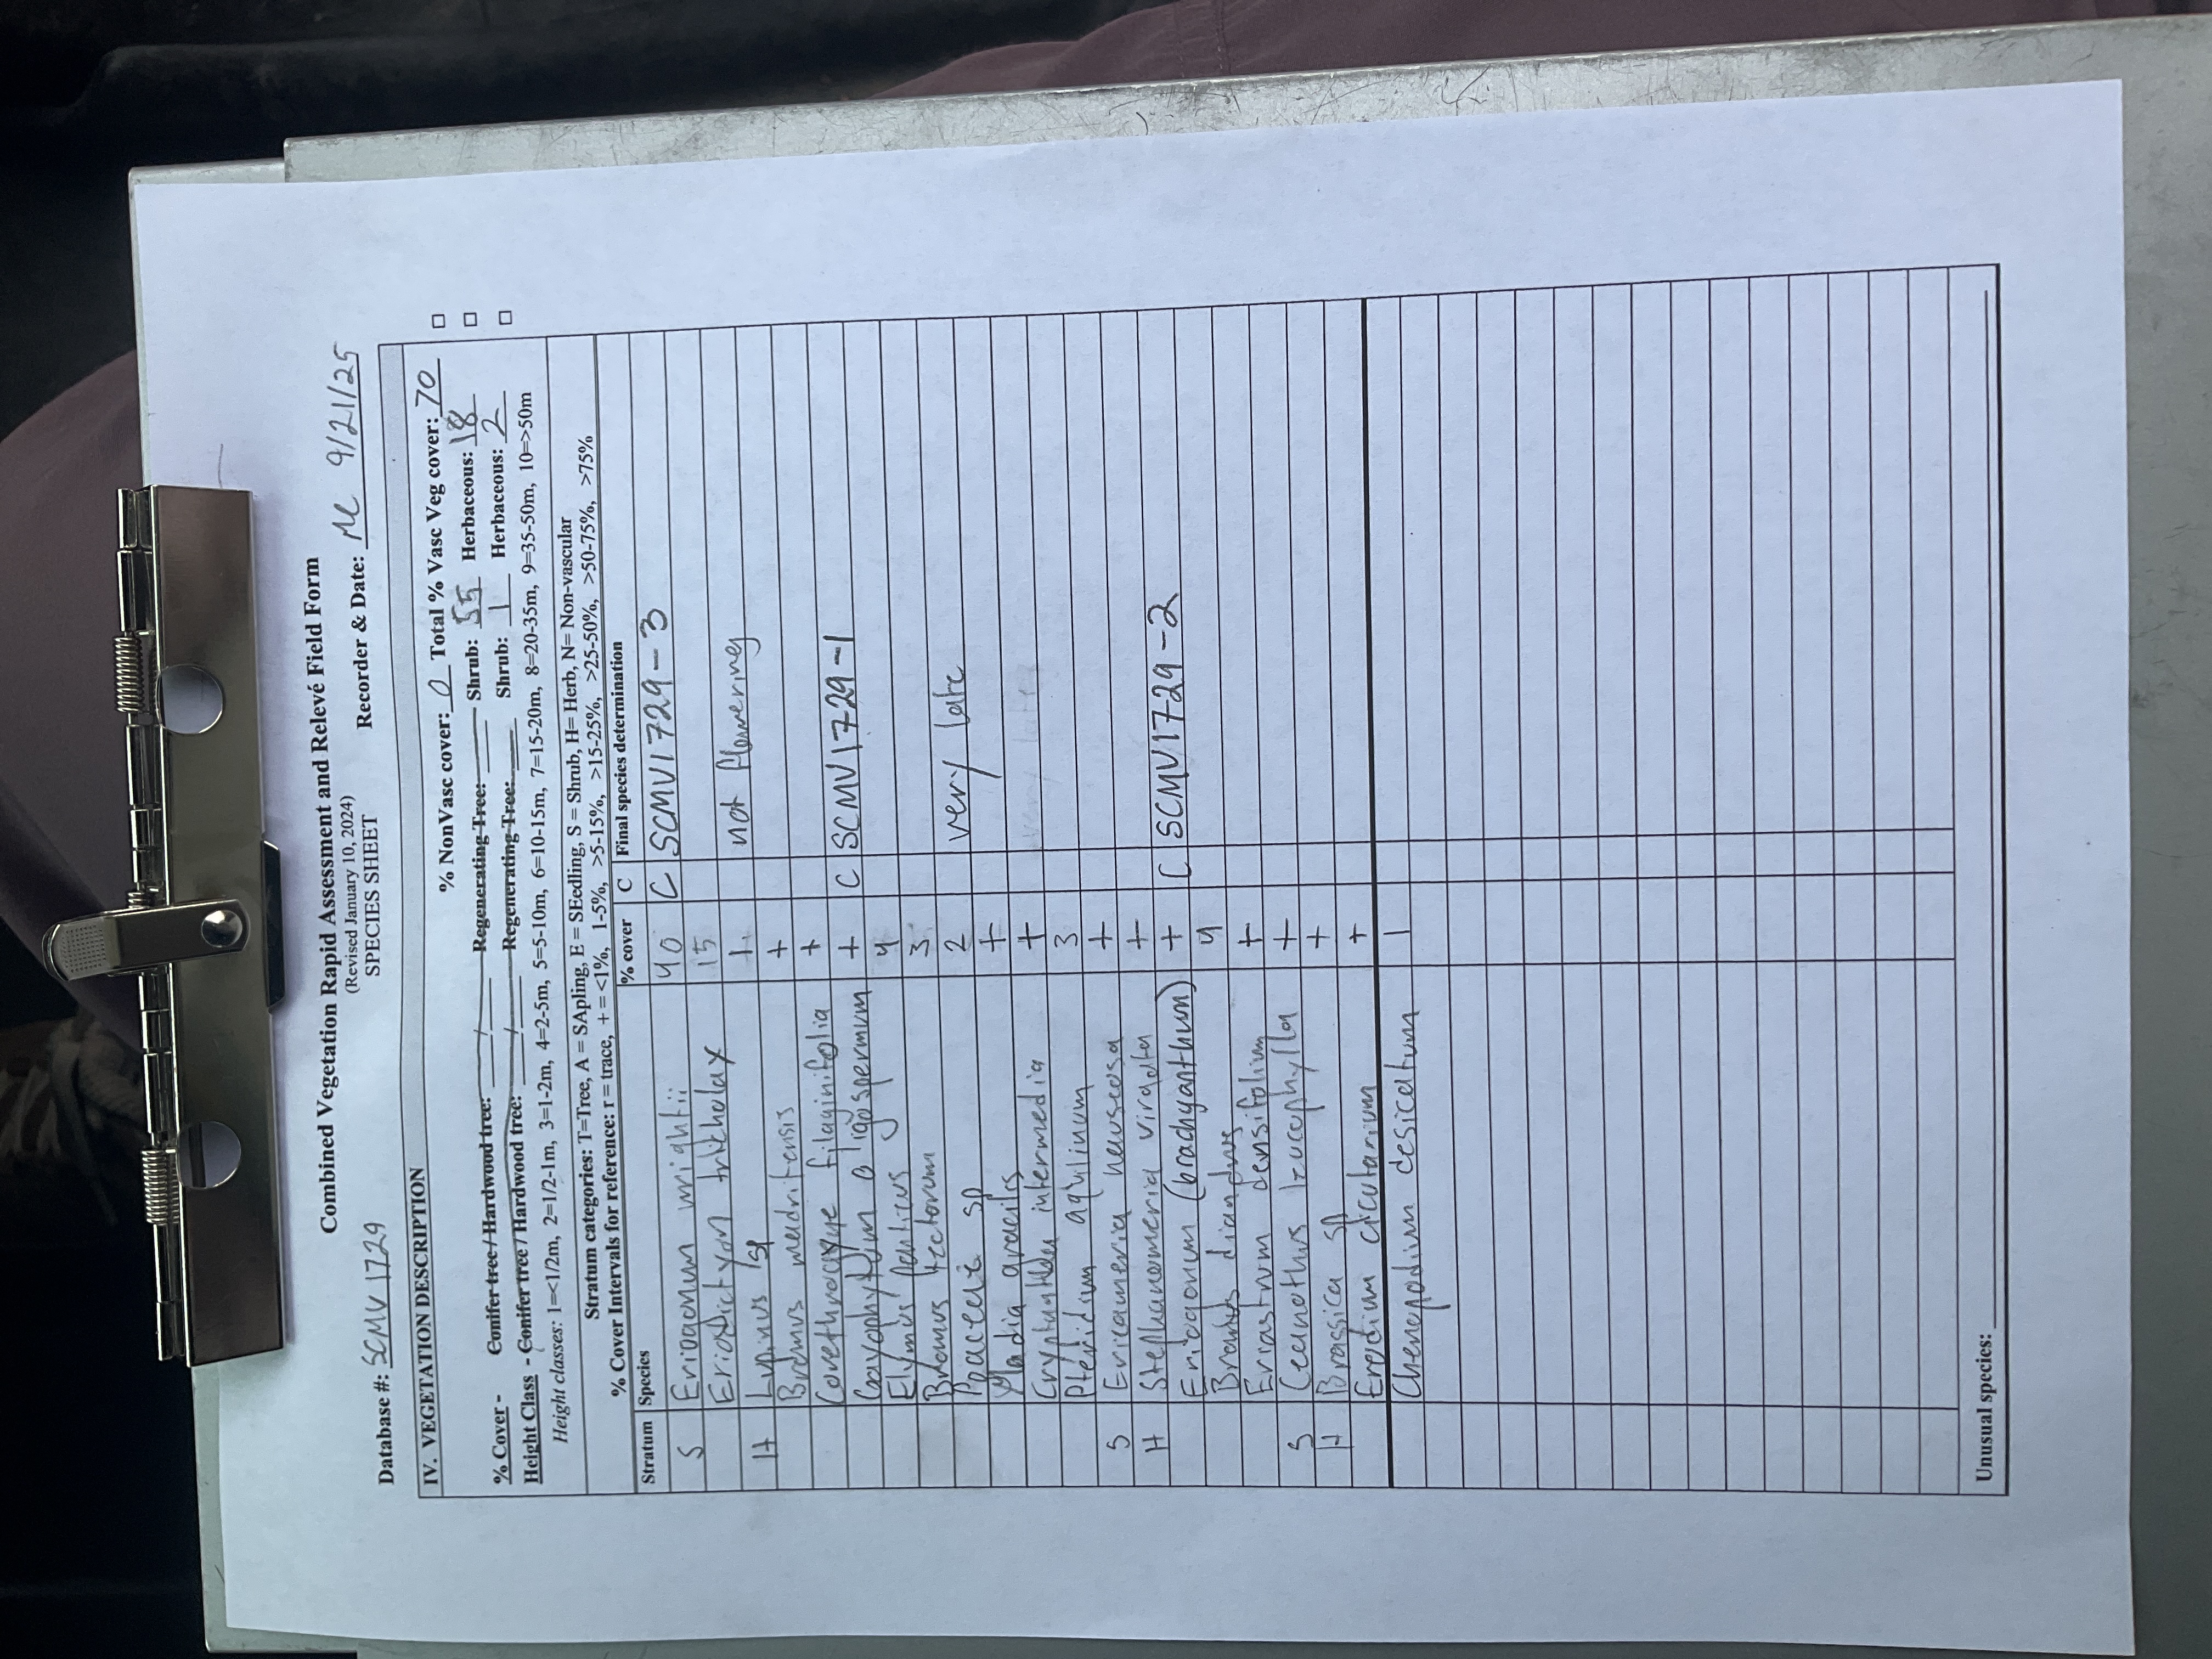 Combined Vegetation Rapid Assessment and Relevé Field Form
(Revised January 10, 2024)
SPECIES SHEET
Database #: SCMV1729 Recorder & Date: ML 9/21/25
IV. VEGETATION DESCRIPTION
% NonVasc cover: 0 Total % Vasc Veg cover: 70 □
% Cover - Conifer tree / Hardwood tree: / Regenerating Tree: Shrub: 55 Herbaceous: 18 □
Height Class - Conifer tree / Hardwood tree: / Regenerating Tree: Shrub: 1 Herbaceous: 2 □
Height classes: 1=<1/2m, 2=1/2-1m, 3=1-2m, 4=2-5m, 5=5-10m, 6=10-15m, 7=15-20m, 8=20-35m, 9=35-50m, 10=>50m
Stratum categories: T=Tree, A = SApling, E = SEedling, S = Shrub, H= Herb, N= Non-vascular
% Cover Intervals for reference: r = trace, + = <1%, 1-5%, >5-15%, >15-25%, >25-50%, >50-75%, >75%
Stratum Species % cover C Final species determination
S Eriogonum wrightii 40 C SCMV1729-3
Eriodictyon trichocalyx 15
H Lupinus sp 1 not flowering
Bromus madritensis +
Corethrogyne filaginifolia +
Gayophytum oligospermum + C SCMV1729-1
Elymus glaucus 4
Bromus tectorum 3
Poaceae sp 2 very late
Madia gracilis +
Cryptantha intermedia +
Pteridium aquilinum 3
S Ericameria nauseosa +
H Stephanomeria virgata +
Eriogonum (brachyanthum) + C SCMV1729-2
Bromus diandrus 4
Eriastrum densifolium +
S Ceanothus leucophylla +
H Brassica sp +
Erodium cicutarium +
Chenopodium desicatum 1
Unusual species: